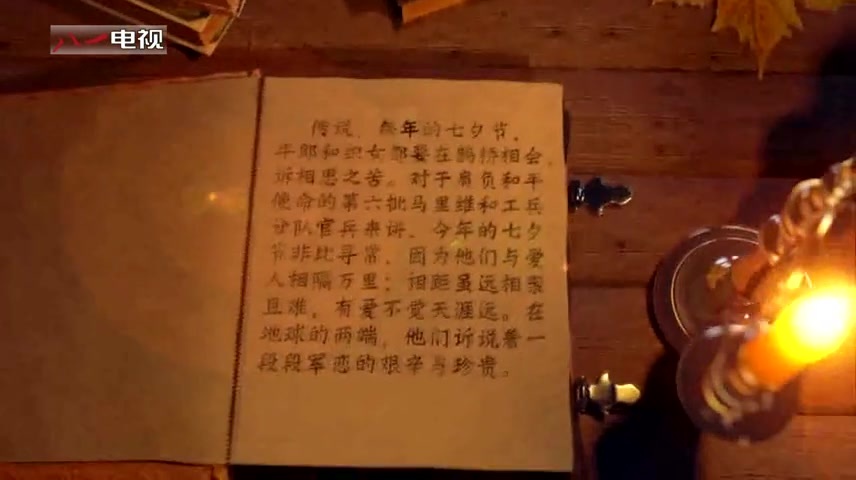 八一电视
传说,每年的七夕节,
牛郎和织女都要在鹊桥相会,
诉相思之苦。对于肩负和平
使命的第六批马里维和工兵
分队官兵来讲,今年的七夕
节非比寻常,因为他们与爱
人相隔万里;相距虽远相聚
且难,有爱不觉天涯远。在
地球的两端,他们诉说着一
段段军恋的艰辛与珍贵。